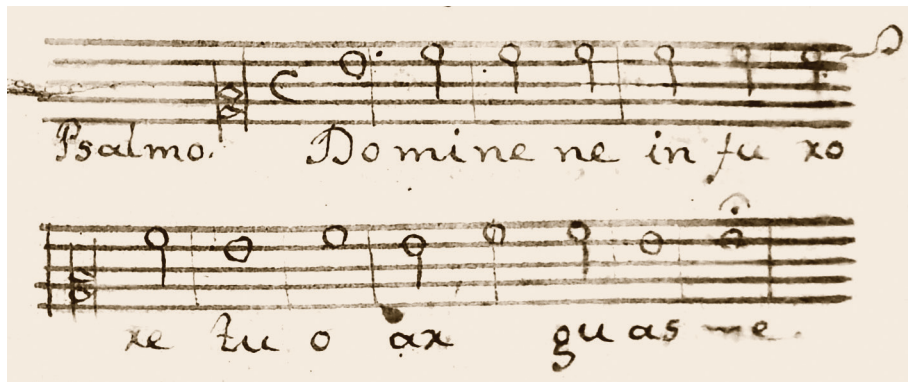 Psalmo. Domine ne in furo
re tuo arguas me.